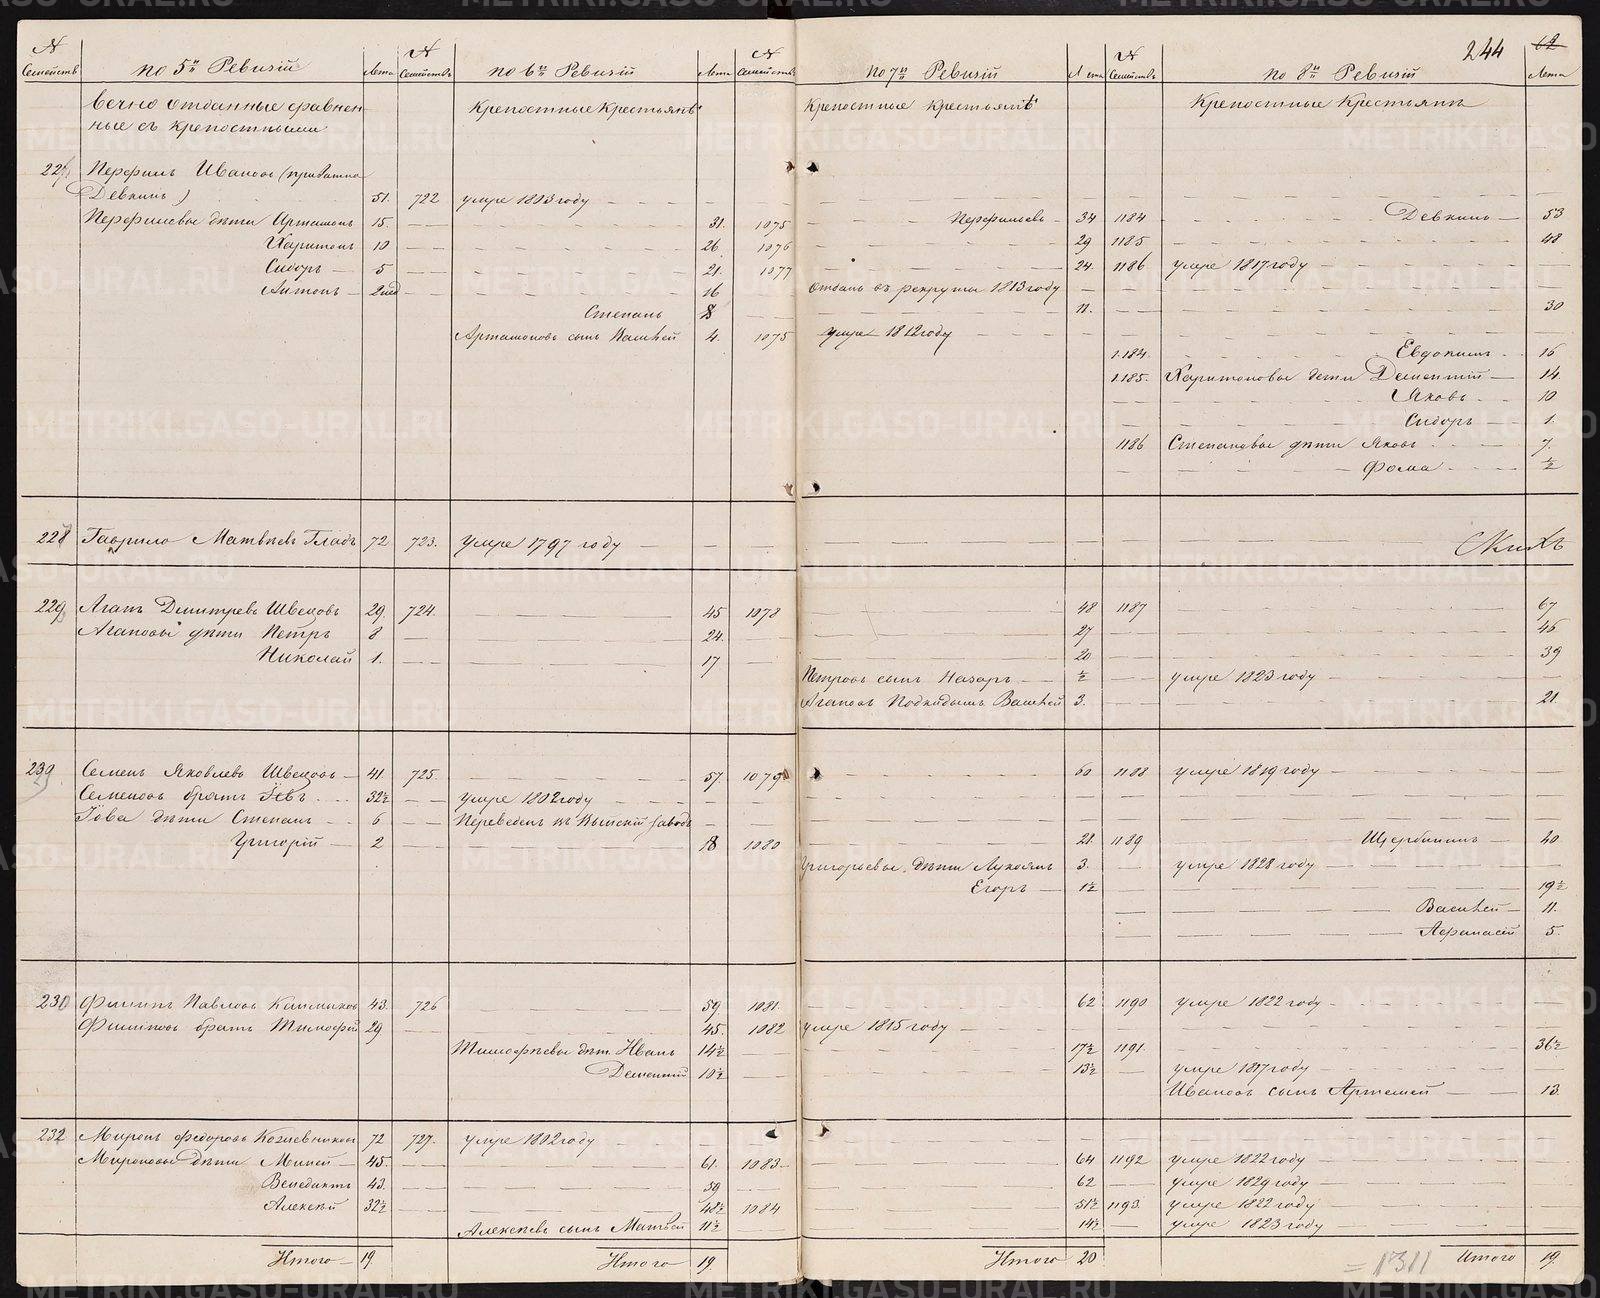 244 62
№ Семейств по 5й Ревизіи Лета № Семействъ по 6й Ревизіи Лета № Семействъ по 7й Ревизіи Лета № Семействъ по 8й Ревизіи Лета
вечно отданные сравнен
ные съ крепостными
Крепостные Крестьянѣ Крепостные Крестьянѣ Крепостные Крестьянѣ
Перфилъ Ивановъ (
Девкинъ) 51. 722 умре 1803 году
Перфиловы дѣти Артамонъ 15. 31. 1075 Перфильевъ 34 1184 Девкинъ 53
Харитонъ 10 26 1076 29 1185 48
Сидоръ 5 21. 1077 24. 1186 умре 1817 году
Антонъ 2 16 отданъ въ рекруты 1813 году
Степанъ 8 11. 30
Артамоновъ сынъ Василей 4. 1075 умре 1812 году
1184. Евдокимъ 16
1185. Харитоновы дети Дементій 14.
Яковъ 10
Сидоръ 1.
1186 Степановы дѣти Яковъ 7.
Фома ½
228 Гаврило Матвѣевъ Гладъ 72 723. умре 1797 году скихъ
229 Агапъ Дмитревъ Швецовъ 29. 724. 45 1078 48 1187 67
Агаповы дѣти Петръ 8 24. 27 46
Николай 1. 17 20 39
Петровъ сынъ Назаръ ½ умре 1823 году
Агаповъ Подкидышъ Василей 3. 21.
Семенъ Яковлевъ Швецовъ 41. 725. 57. 1079 60 1188 умре 1819 году
Семеновъ братъ Іевъ 32½ умре 1802 году
Іова дѣти Степанъ 6 Переведенъ въ Выйскій заводъ
Григорій 2 18 1080 21. 1189 Щербининъ 40
Григорьевы дѣти Лукоянъ 3. умре 1828 году
Егоръ 1½ 19½
Василей 11.
Афанасей 5.
Филипъ Павловъ 43. 726 59 1081. 62 1190 умре 1822 году
Филиповъ братъ Тимофей 29 45. 1082 умре 1815 году
Тимофѣевы дѣти Иванъ 14½ 17½ 1191. 36½
Дементій 10½ 13½ умре 1817 году
Ивановъ сынъ Артемей 13.
232 Миронъ Федоровъ Кожевников 72 727. умре 1802 году
Мироновы дѣти Миней 45 61. 1083 64 1192 умре 1822 году
Венедиктъ 43. 59 62 умре 1829 году
Алексѣй 32½ 48½ 1084 51½ 1193. умре 1822 году
Алексѣевъ сынъ Матвей 11½ 14½ умре 1823 году
Итого 19. Итого 19. Итого 20 = 1311 Итого 19.
METRIKI.GASO-URAL.RU